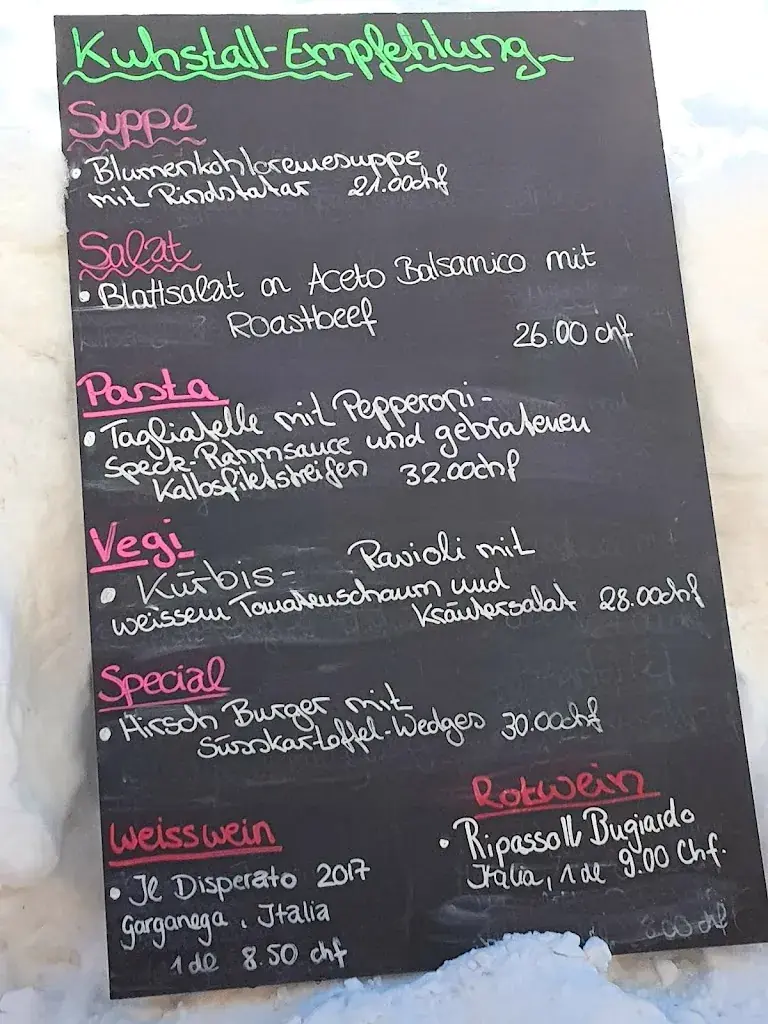 Kuhstall-Empfehlung
Suppe
• Blumenkohlcremesuppe
mit Rindstatar 21.00chf
Salat
• Blattsalat an Aceto Balsamico mit
Roastbeef
26.00 chf
Pasta
• Tagliatelle mit Pepperoni-
Speck-Rahmsauce und gebratenen
Kalbsfiletstreifen 32.00chf
Vegi
• Kürbis- Ravioli mit
weissem Tomatenschaum und
Kräutersalat 28.00chf
Special
• Hirsch Burger mit
Süsskartoffel-Wedges 30.00chf
Weisswein
• Il Disperato 2017
Garganega, Italia
1 dl 8.50 chf
Rotwein
• Ripasso Il Bugiardo
Italia, 1 dl 9.00 Chf.